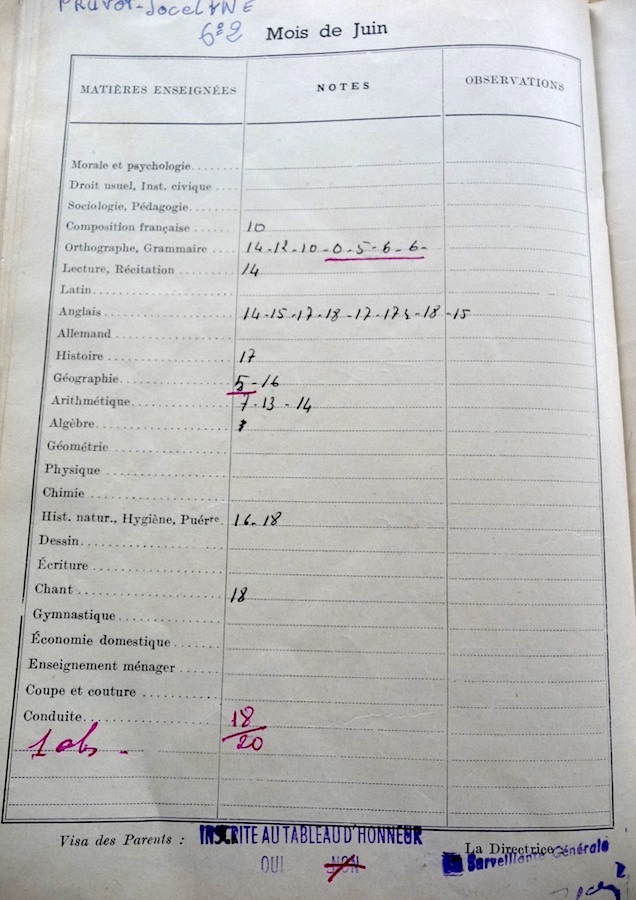 PRUVOT-JocelYNE
6e2 Mois de Juin
MATIÈRES ENSEIGNÉES NOTES OBSERVATIONS
Morale et psychologie.......
Droit usuel, Inst. civique ....
Sociologie, Pédagogie........
Composition française ...... 10
Orthographe, Grammaire .... 14-12-10-0-5-6-6-
Lecture, Récitation ......... 14
Latin.....................
Anglais ................... 14-15-17-18-17-17½-18-15
Allemand ..................
Histoire ................... 17
Géographie................. 5-16
Arithmétique............... 7-13-14
Algèbre....................
Géométrie .................
Physique ..................
Chimie ....................
Hist. natur., Hygiène, Puérre. 16-18
Dessin.....................
Écriture ...................
Chant ..................... 18
Gymnastique................
Économie domestique........
Enseignement ménager ......
Coupe et couture ...........
Conduite................... 18/20
1 abs.
Visa des Parents : INSCRITE AU TABLEAU D'HONNEUR La Directrice :
OUI NON Surveillante Générale